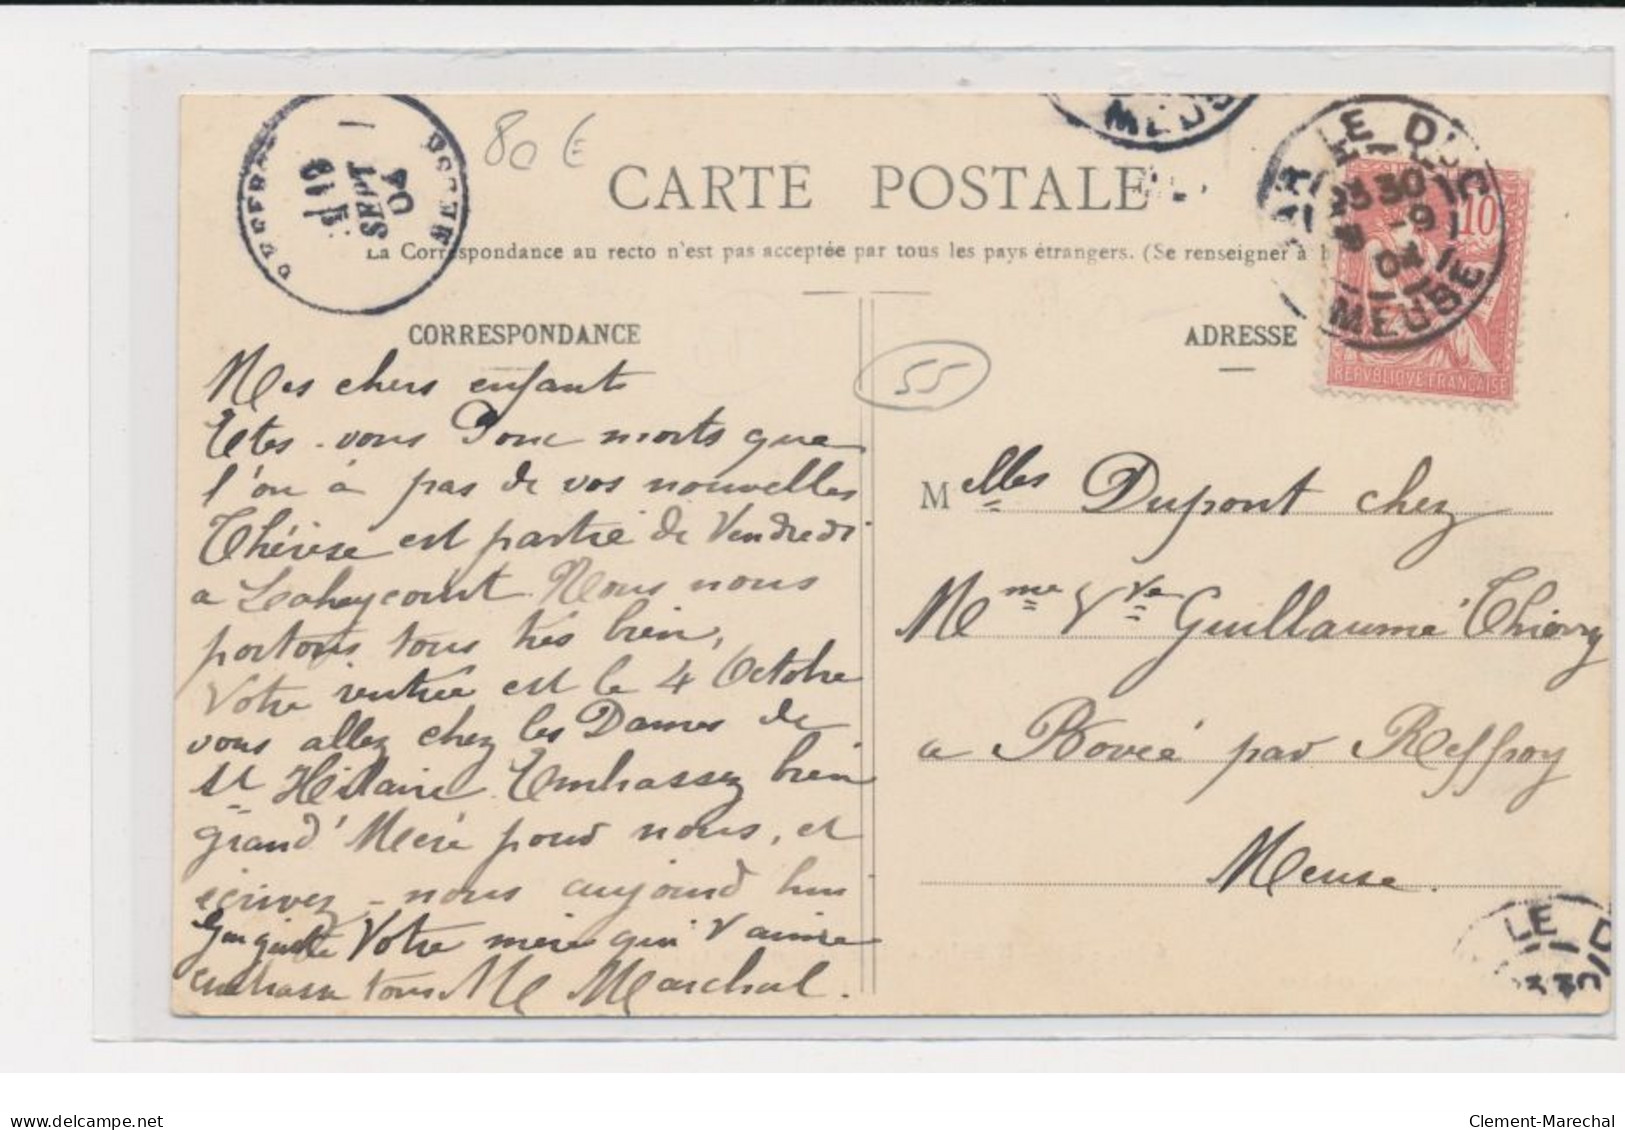 80 €
MEUS
BAR LE DUC
23 30
9
04
MEUSE
10
REPVBLIQVE FRANCAISE
SEPT
04
CARTE POSTALE
La Correspondance au recto n'est pas acceptée par tous les pays étrangers. (Se renseigner à
CORRESPONDANCE
ADRESSE
55
Mes chers enfants
Etes-vous Donc morts que
l'on à pas de vos nouvelles
Thérèse est partie de Vendredi
a Laheycourt. Nous nous
portons tous très bien,
Votre rentrée est le 4 Octobre
vous allez chez les Dames de
St Hilaire. Embrassez bien
grand'Mère pour nous, et
écrivez-nous aujourd'hui
Votre mère qui v aime
embrasse tous M Marchal.
Melles Dupont chez
Mme Vve Guillaume Thierry
a Bovée par Reffroy
Meuse.
LE DUC
delcampe.net
Clement-Marechal